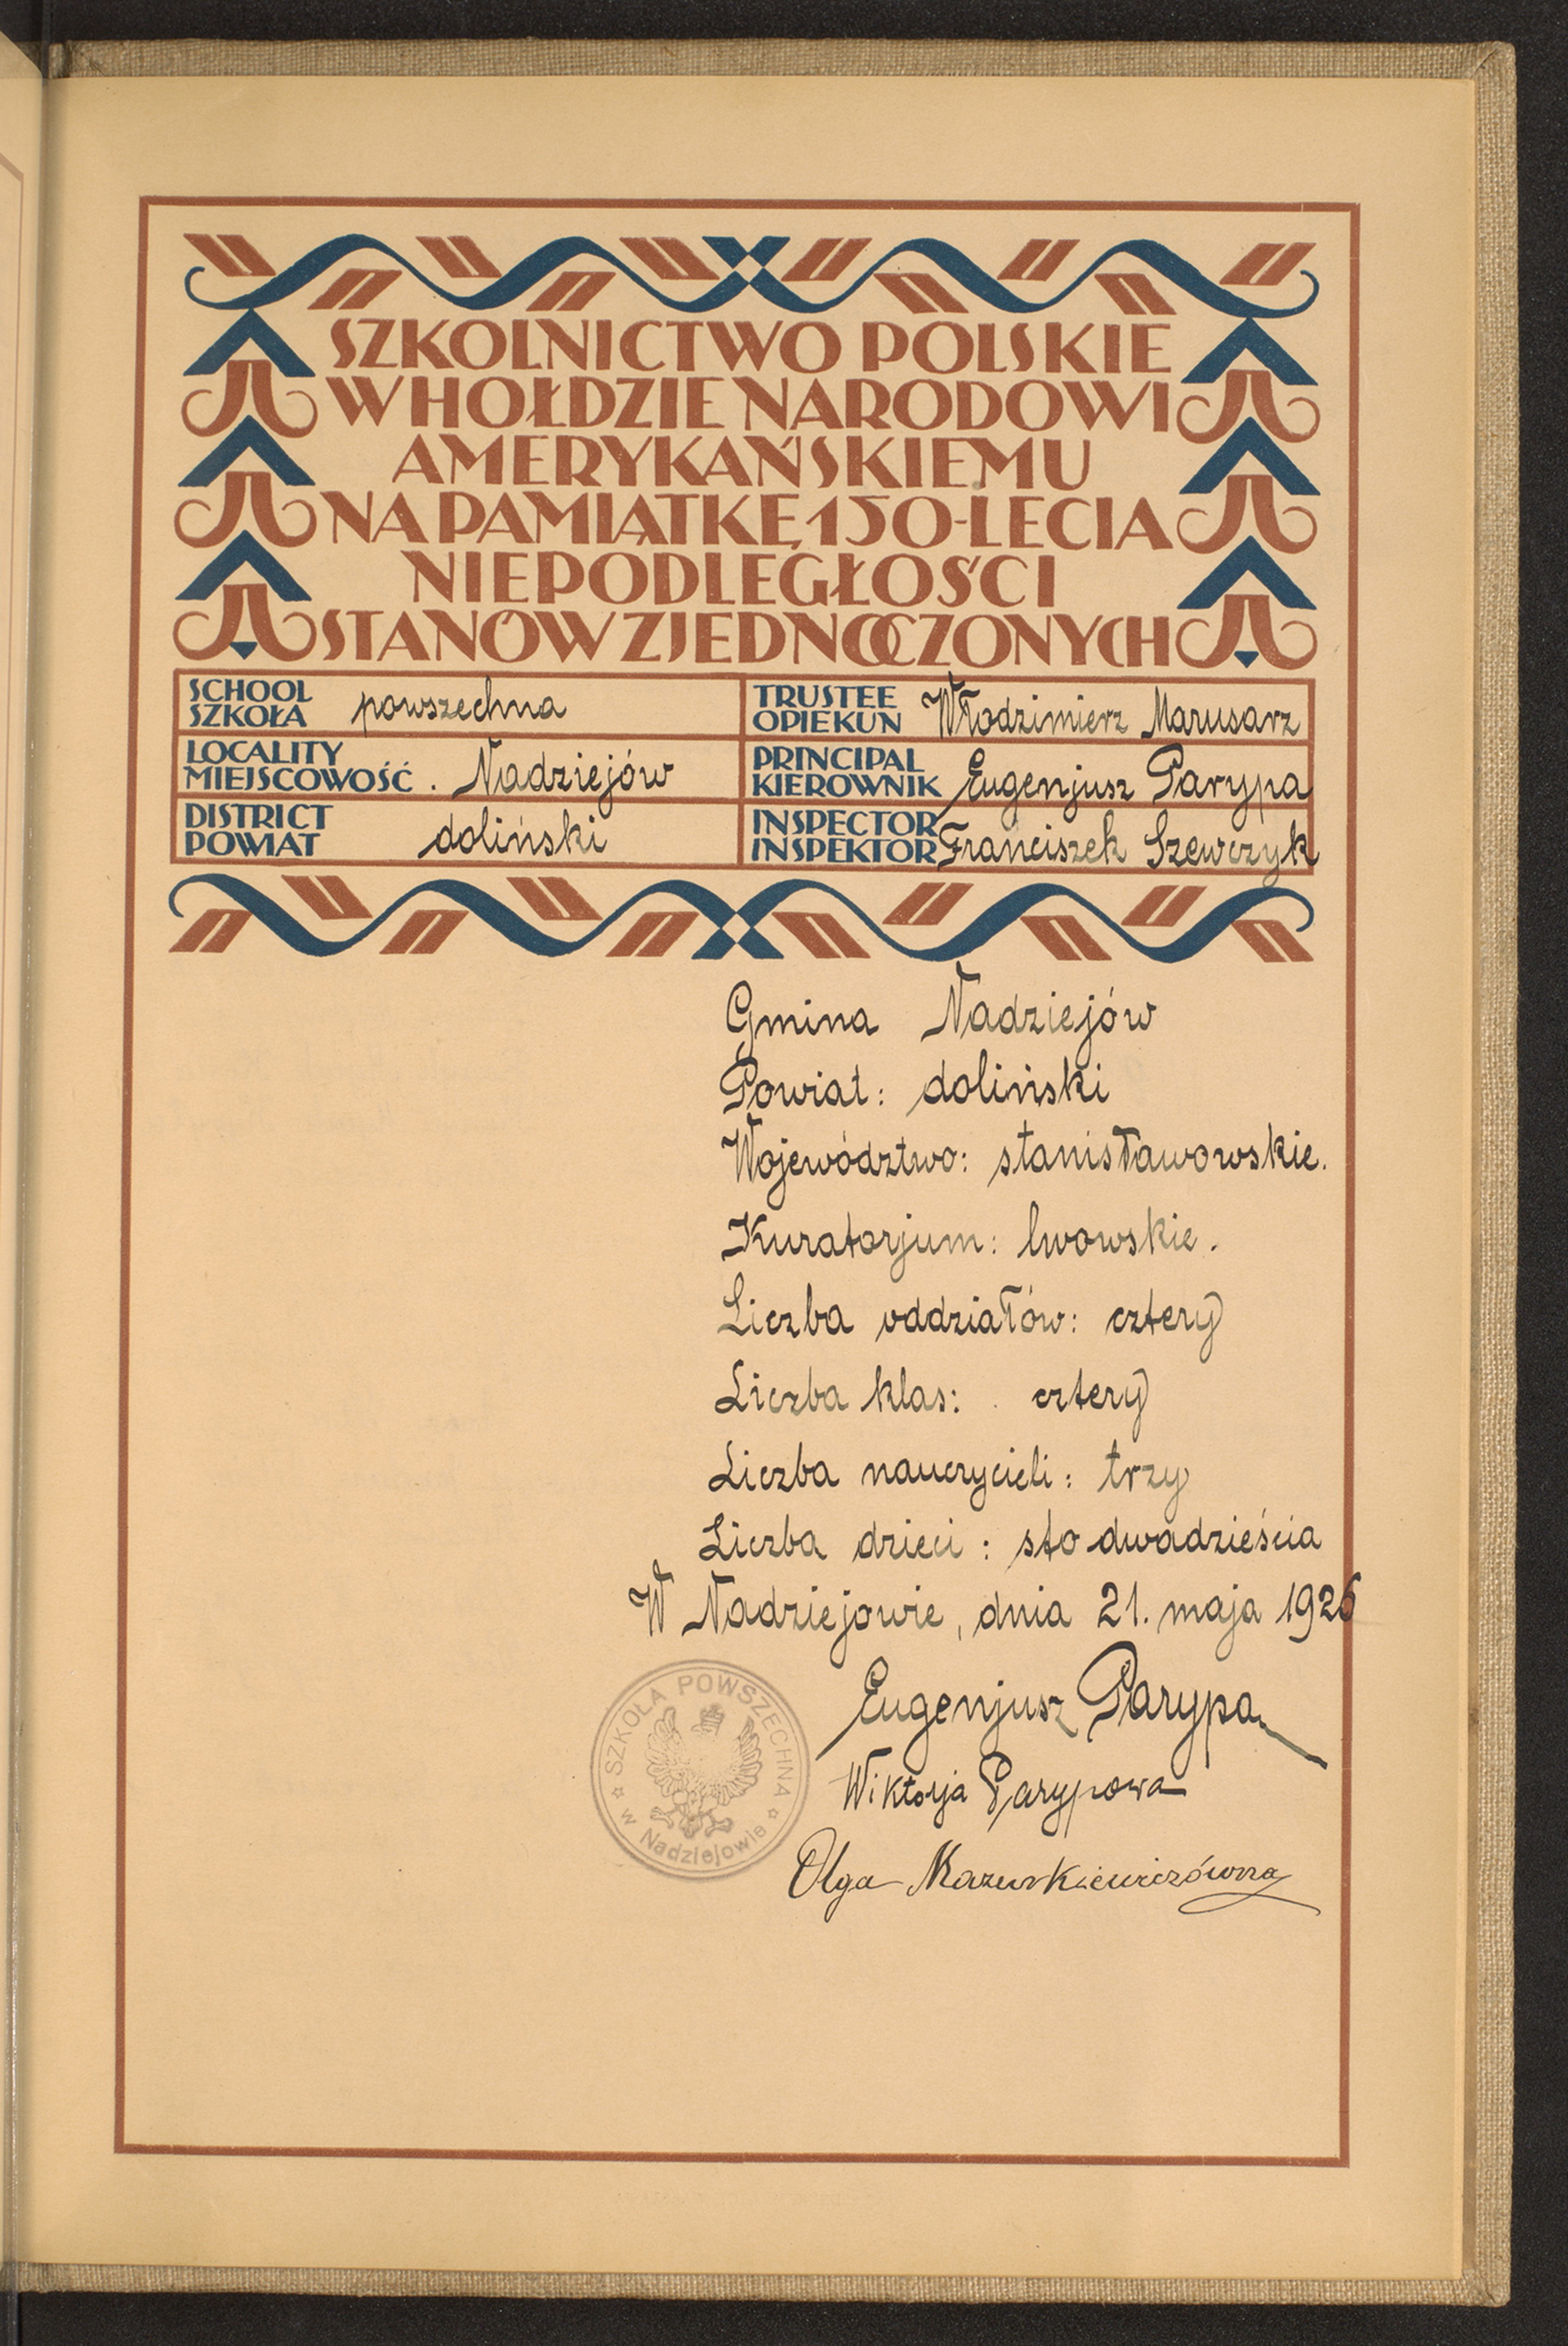 SZKOLNICTWO POLSKIE
W HOŁDZIE NARODOWI
AMERYKAŃSKIEMU
NA PAMIĄTKĘ 150-LECIA
NIEPODLEGŁOŚCI
STANÓW ZJEDNOCZONYCH
SCHOOL
SZKOŁA powszechna
TRUSTEE
OPIEKUN Włodzimierz Marusarz
LOCALITY
MIEJSCOWOŚĆ. Nadziejów
PRINCIPAL
KIEROWNIK Eugenjusz Parypa
DISTRICT
POWIAT doliński
INSPECTOR
INSPEKTOR Franciszek Szewczyk
Gmina Nadziejów
Powiat: doliński
Województwo: stanisławowskie.
Kuratorjum: lwowskie.
Liczba oddziałów: cztery
Liczba klas: cztery
Liczba nauczycieli: trzy
Liczba dzieci: sto dwadzieścia
W Nadziejowie, dnia 21. maja 1926
Eugenjusz Parypa
Wiktorja Parypowa
Olga Mazurkiewiczówna
SZKOŁA POWSZECHNA
w Nadziejowie